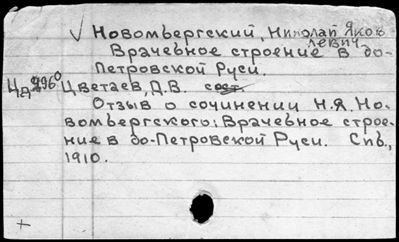 Новомбергский, Николай Яков
левич.
Врачебное строение в до-
Петровской Руси.
Цветаев, Д.В. сост.
Отзыв о сочинении Н.Я. Но-
вомбергского: Врачебное строе-
ние в до-Петровской Руси. Спб.,
1910.